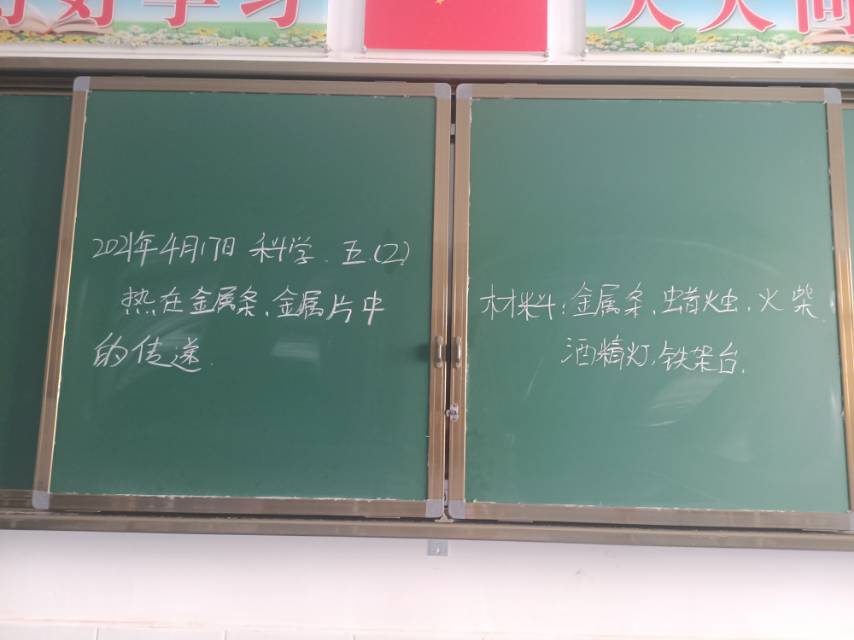 好好学习
天天向
2021年4月17日 科学. 五.(2)
热在金属条、金属片中
的传递.
材料:金属条、蜡烛、火柴
酒精灯、铁架台.